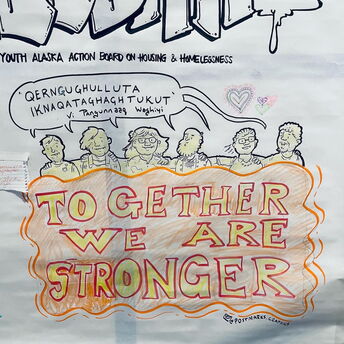 YOUTH ALASKA ACTION BOARD ON HOUSING & HOMELESSNESS
QERNGUGHULLUTA
IKNAQATAGHAGHTUKUT
Vi Pangunnaaq Waghiyi
TOGETHER
WE ARE
STRONGER